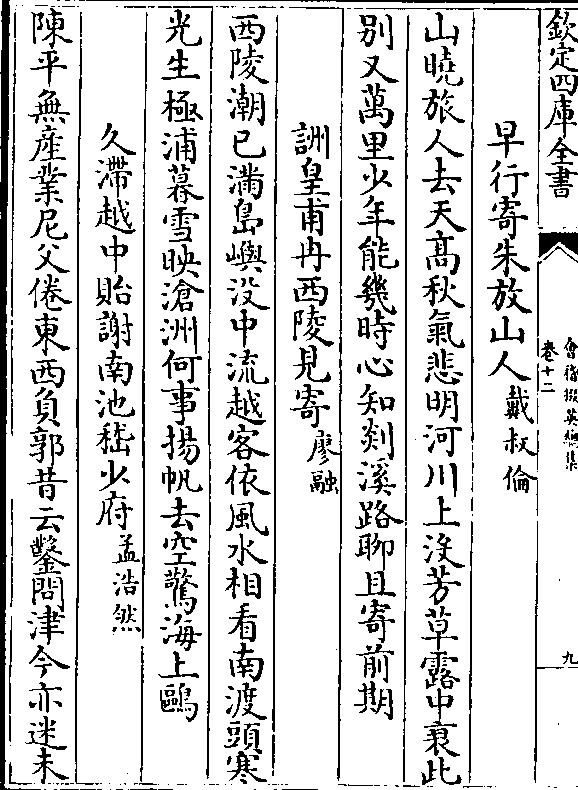 欽定四庫全書
會稽掇英總集
卷十二
九
早行寄朱放山人戴叔倫
山曉旅人去天髙秋氣悲明河川上沒芳草露中衰此
别又萬里少年能幾時心知剡溪路聊且寄前期
詶皇甫冉西陵見寄廖融
西陵潮已滿島嶼没中流越客依風水相看南渡頭寒
光生極浦暮雪映滄洲何事揚帆去空驚海上鷗
久滯越中貽謝南池嵇少府孟浩然
陳平無産業尼父倦東西負郭昔云鑿問津今亦迷未